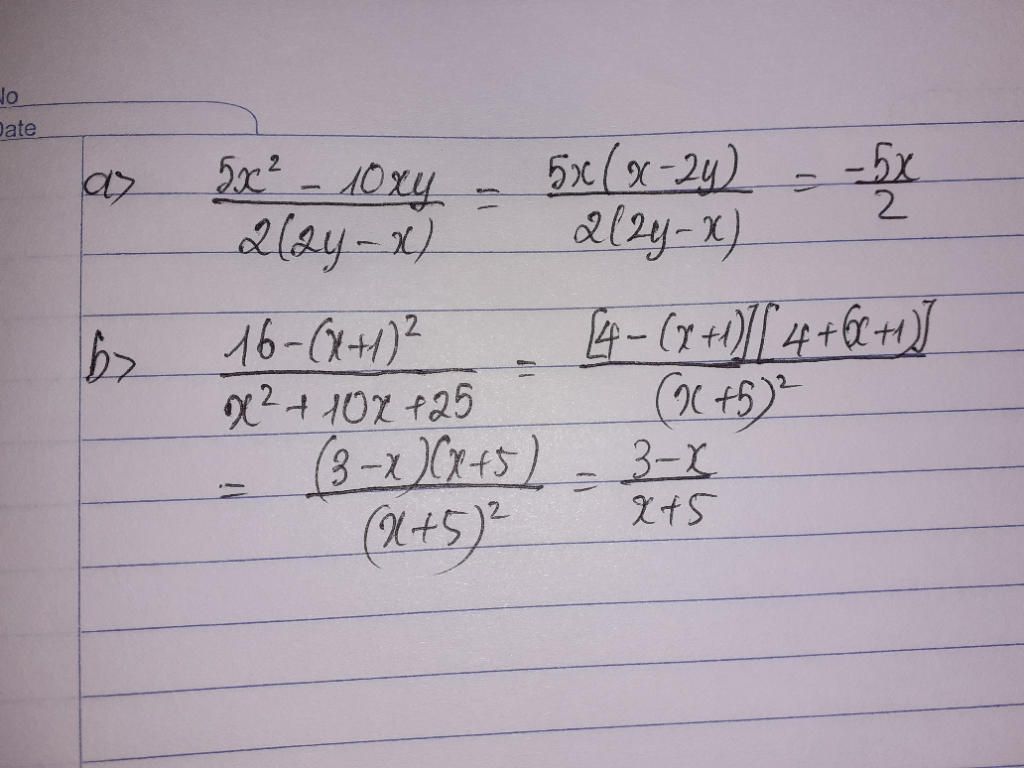 No
Date
a> \frac{5x^2 - 10xy}{2(2y - x)} = \frac{5x(x - 2y)}{2(2y - x)} = \frac{-5x}{2}
b> \frac{16 - (x+1)^2}{x^2 + 10x + 25} = \frac{[4 - (x+1)][4 + (x+1)]}{(x+5)^2}
= \frac{(3 - x)(x+5)}{(x+5)^2} = \frac{3 - x}{x+5}